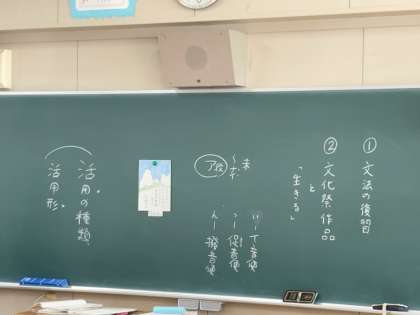 ① 文法の復習
② 文化祭作品
と
「生きる」
未
〜ず
ア段
い…イ音便
っ…促音便
ん…撥音便
活用の種類、
活用形。